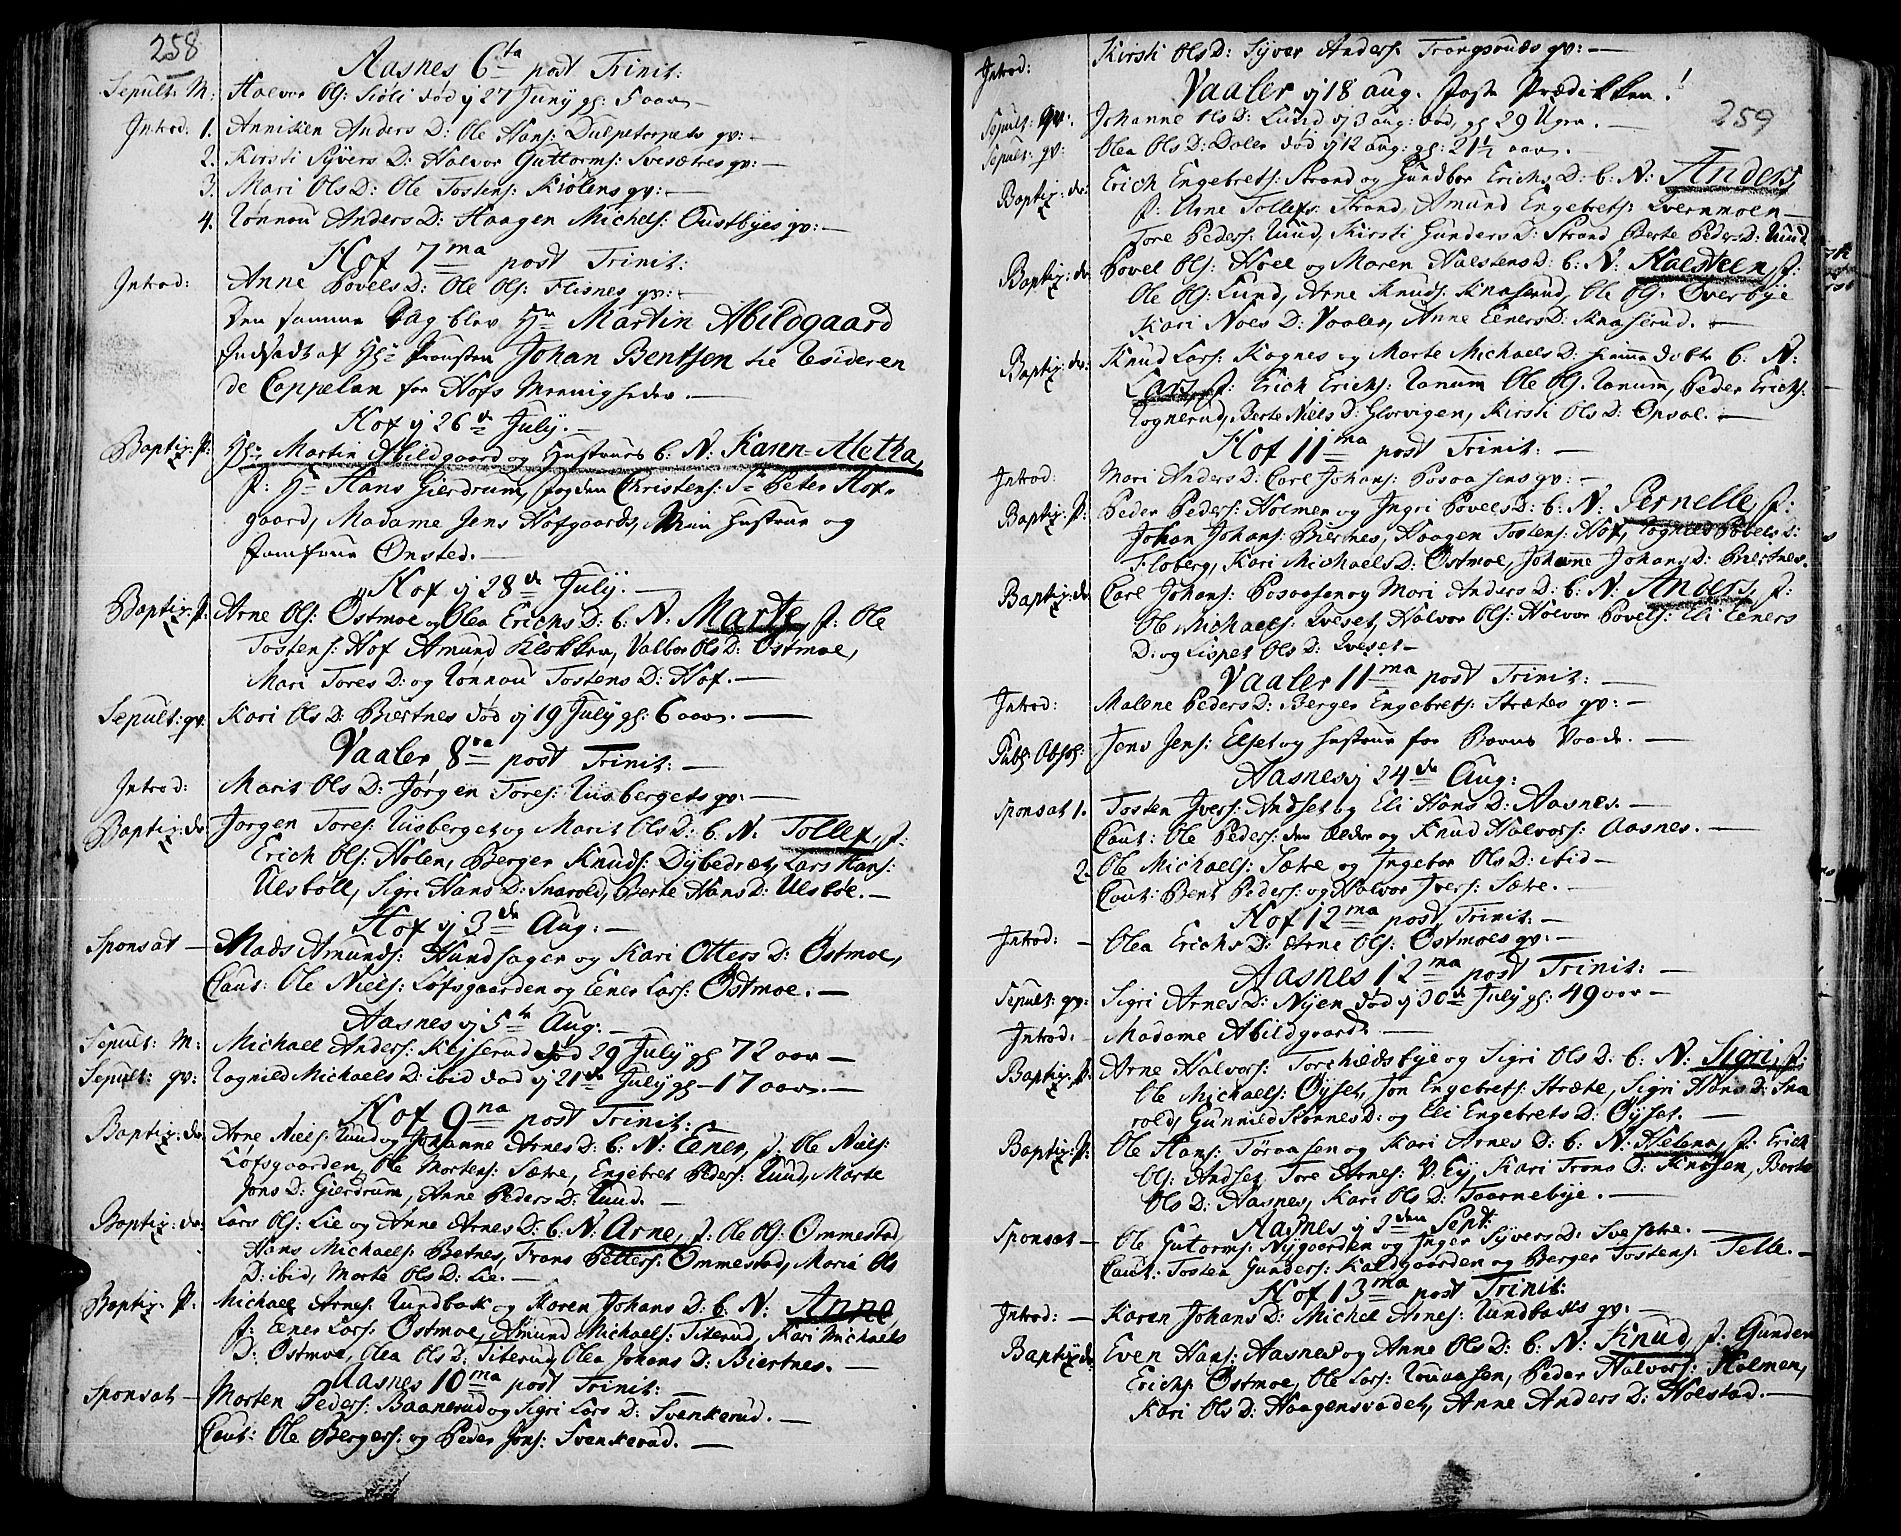 258
Aasnes 6ta post Trinit:
Sepult: M: Halvor Ols: Siöli död d 27 Juny gl: 5 aar —
Introd: 1. Anniken Anders D: Ole Hans: Dulpetorpets qv: —
2. Kirsti Syvers D: Halvor Guttorms: Svesætres qv: —
3. Mari Ols D: Ole Tostens: Kiölens qv: —
4. Rönnou Anders D: Haagen Michels: Oustbyes qv: —
Hof 7ma post Trinit:
Introd: Anne Povels D: Ole Ols: Flisnes qv: —
Den samme Dag blev Hr Martin Abildgaard
Indsadt af Hr Provsten Johan Bentsen til Resideren
de Cappelan for Hofs Menigheder. —
Hof d 26de July. —
Baptiz: P: Hr: Martin Abildgaard og Hustrues b: N: Karen-Aletha,
f: Hr Hans Gierdrum, fogden Christens: Sr Peter Hof-
gaard, Madame Jens Hofgaards, Min hustrue og
Jomfrue Önsted. —
Hof d 28de July. —
Baptiz: P: Arne Ols: Östmoe og Olea Erichs D: b: N: Marte, f: Ole
Tostens: Hof Amund Klokker, Valbor Ols D: Östmoe,
Mari Tores D: og Rönnou Tostens D: Hof. —
Sepult: qv: Kari Ols D: Biertnes död d 19 July gl: 6 aar. —
Vaaler 8va post Trinit: —
Introd: Marit Ols D: Jörgen Tores: Risbergets qv: —
Baptiz: dr: Jörgen Tores: Risberget og Marit Ols D: b: N: Tollef, f:
Erich Ols: Nolen, Berger Knuds: Dybedræt, Lars Hans:
Ulsböll, Sigri Hans D: Snarold, Berte Hans D: Ulsböe. —
Hof d 3de Aug: —
Sponsat — Mads Amunds: Hundsager og Kari Otters D: Östmoe,
Caut: Ole Niels: Löfsgaarden og Eener Lars: Östmoe. —
Aasnes d 5te Aug: —
Sepult: M: Michael Anders: Kejserud död 29 July gl 72 aar —
Sepult: qv: Rognild Michaels D: ibid död d 21de July gl — 17 aar. —
Hof 9na post Trinit: —
Baptiz: dr: Arne Niels: Ruud og Johanne Arnes D: b: N: Eener, f: Ole Niels:
Löfsgaarden, Ole Mortens: Sætre, Engebret Peders: Ruud, Marte
Jons D: Gierdrum, Anne Peders D: Ruud. —
Baptiz: dr: Lars Ols: Lie og Anne Arnes D: b: N: Arne, f: Ole Ols: Ommestad
Hans Michaels: Betnes, Frans Petters: Ommestad, Maria Ols
D: ibid, Marte Ols D: Lie. —
Baptiz: P: Michael Arnes: Rundbak og Karen Johans D: b: N: Anne,
f: Eener Lars: Östmoe, Amund Michaels: Titerud, Kari Michaels
D: Östmoe, Olea Ols D: Titerud, Olea Johans D: Biertnes. —
Aasnes 10ma post Trinit: —
Sponsat — Morten Peders: Baanerud og Sigri Lars D: Svenkerud. —
Caut: Ole Bergers: og Peder Jons: Svenkerud. —
Introd: Kirsti Ols D: Syver Anders: qv: —
Vaaler d 18 aug. Prædikken!
259
Sepult: qv: Johanne Ols D: Lund d 3 aug: död, gl 29 Uger. —
Sepult: qv: Olea Ols D: Daler död d 12 aug: gl: 21½ aar. —
Baptiz: dr: Erich Engebrets: Strand og Gundbor Erichs D: b: N: Anders
f: Arne Tollefs: Strand, Amund Engebrets: Qvernmoen —
Tore Peders: Ruud, Kirsti Gunders D: Strand Berte Peders D: Ruud
Baptiz: dr: Povel Ols: Hoel og Maren Halstens D: b: N: Halsteen, f:
Ole Ols: Lund, Arne Knuds: Knaserud, Ole Ols: Överbye
Kari Noes D: Vaaler, Anne Eeners D: Knaserud. —
Baptiz: dr: Knud Lars: Kognes og Marte Michaels D: hiemme döbte b: N:
Lars, f: Erich Erichs: Ranum Ole Ols: Ranum, Peder Erichs:
Rognerud, Berte Niels D: Glorvigen, Kirsti Ols D: Opsal. —
Hof 11ma post Trinit: —
Introd: Mari Anders D: Carl Johans: Posaasens qv: —
Baptiz: P: Peder Peders: Holmen og Ingri Povels D: b: N: Pernelle, f:
Johan Johans: Biertnes, Haagen Tostens: Hof, Rognild Povels D:
Floberg, Kari Michaels D: Östmoe, Johanne Johans D: Biertnes.
Baptiz: dr: Carl Johans: Posaasen og Mari Anders D: b: N: Anders, f:
Ole Michaels: Qveset, Halvor Ols: Halvor Povels: Eli Eeners
D: og Lispet Ols D: Qveset —
Vaaler 11ma post Trinit: —
Introd: Malene Peders D: Berger Engebrets: Strætes qv: —
Publ: Absol: Jens Jens: Elset og hustrue for Barns Vaade. —
Aasnes d 24de Aug:
Sponsat 1. Tosten Ivers: Andset og Eli Hans D: Aasnes. —
Caut: Ole Peders: den ældre og Knud Halvors: Aasnes. —
2. Ole Michaels: Sætre og Ingebor Ols D: ibid —
Caut: Bent Peders: og Halvor Ivers: Sætre. —
Hof 12ma post Trinit. —
Introd: — Olea Erichs D: Arne Ols: Östmoes qv: —
Aasnes 12ma post Trinit: —
Sepult: qv: Sigri Arnes D: Nyen död d 30te July gl: 49 aar —
Introd: — Madame Abildgaard. —
Baptiz: P: Arne Halvors: Torkildsbye og Sigri Ols D: b: N: Sigri, f:
Ole Michaels: Öyset, Jon Engebrets: Stræte, Sigri Hans D: Sna
rold, Gunnild D: og Eli Engebrets D: Öyset. —
Baptiz: P: Ole Hans: Töraasen og Kari Arnes D: b: N: Helena, f: Erich
Ols: Andset, Tore Arnes: V: Ey, Kari Frans D: Knösen, Berte
Ols D: Aasnes, Kari Ols D: Taarnebye. —
Aasnes d 3den Sept:
Sponsat — Ole Gutorms: Nygaarden og Inger Syvers D: Svesætre. —
Caut: Tosten Gunders: Kaldgaarden og Berger Tostens: Telle. —
Hof 13ma post Trinit:
Introd: — Karen Johans D: Michel Arnes: Rundbaks qv: —
Baptiz: dr: Even Hans: Aasnes og Anne Ols D: b: N: Knud, f: Gunder
Erichs: Östmoe, Ole Lars: Rouaasen, Peder Halvors: Holmen,
Kari Ols D: Haagensvadet, Anne Anders D: Holstad. —